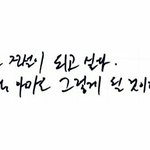 전설이 되고 싶다.
아마도 그렇게 될 것이